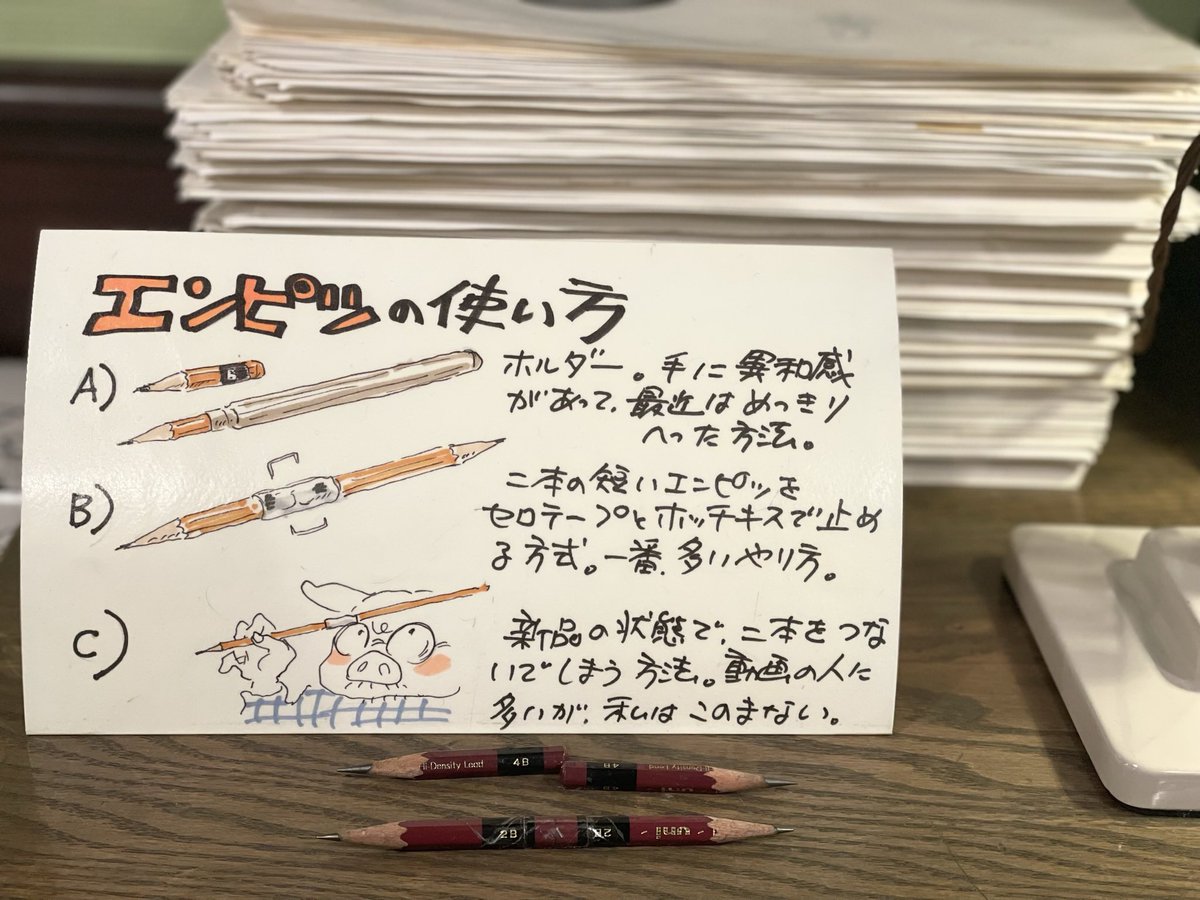 エンピツの使い方
A)
ホルダー。手に異和感
があって、最近はめっきり
へった方法。
B)
二本の短いエンピツを
セロテープとホッチキスで止め
る方式。一番、多いやり方。
C)
新品の状態で、二本をつな
いでしまう方法。動画の人に
多いが、私はこのまない。
Hi-Density Lead 4B
4B
2B
2B